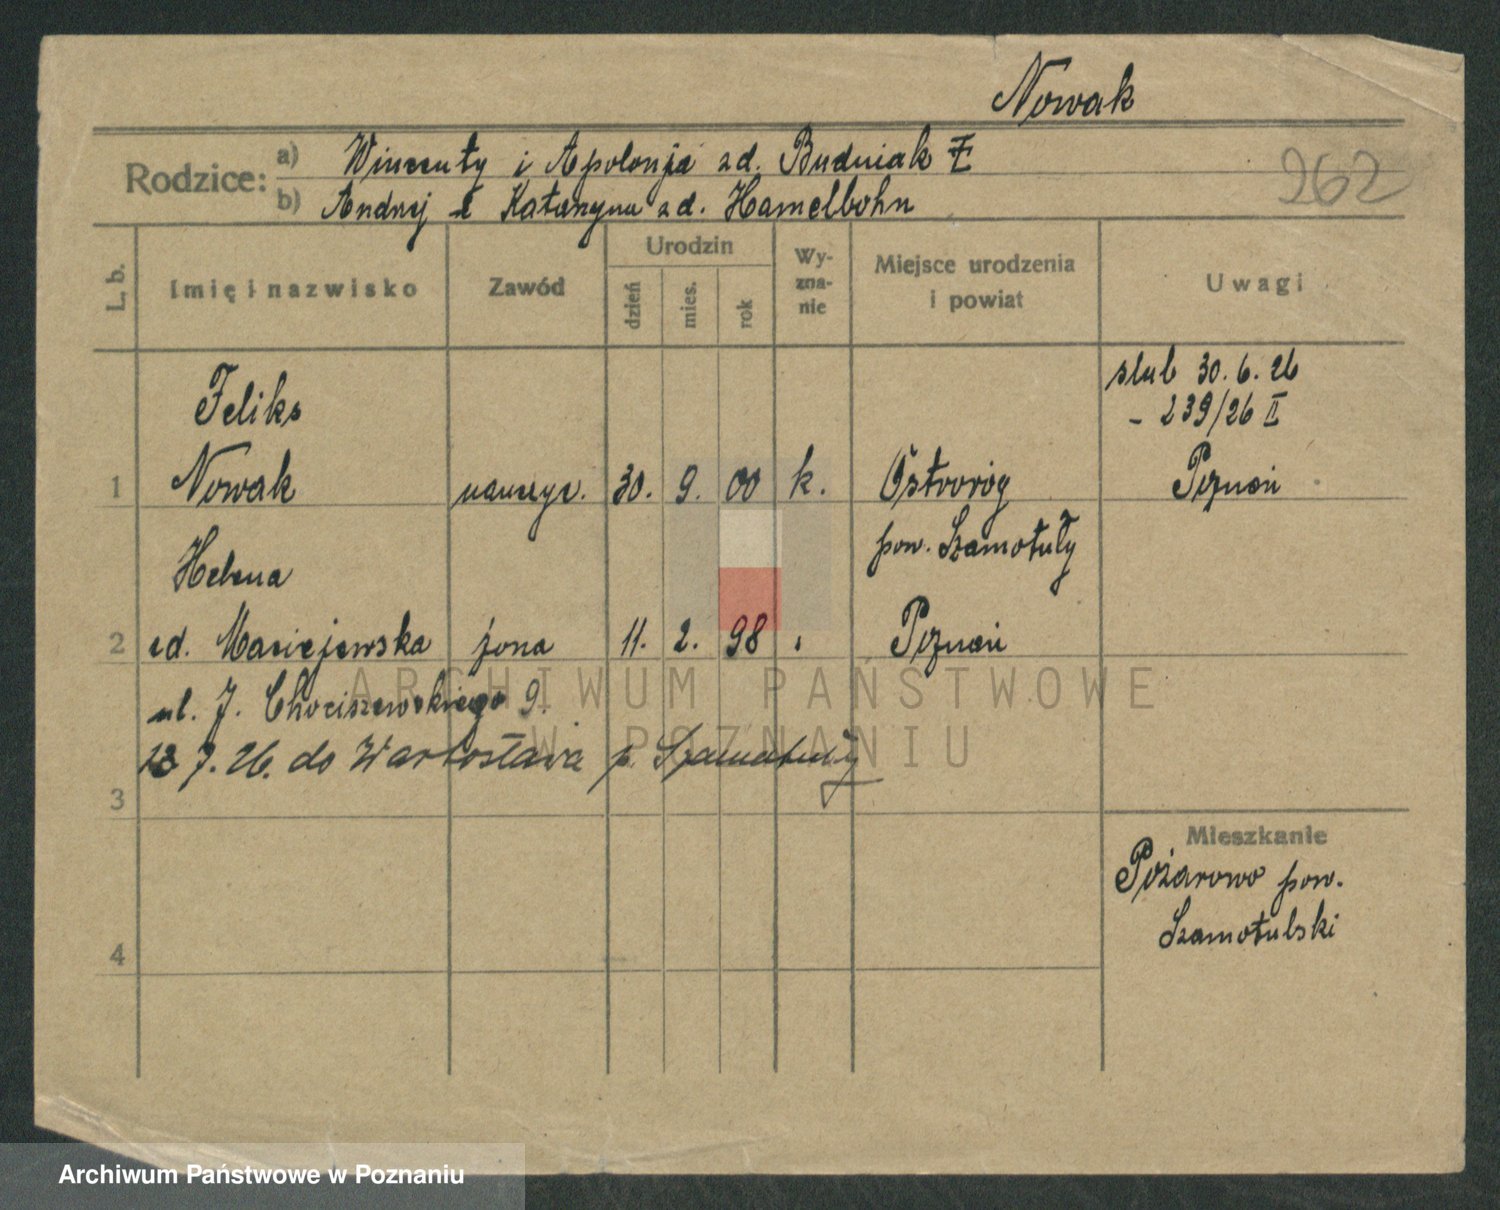 Nowak
Rodzice:
a) Wincenty i Apolonja zd. Budniak
b) Andrzej i Katarzyna zd. Hamelbohn
262
L. b.
Imię i nazwisko
Zawód
Urodzin
dzień
mies.
rok
Wy-
zna-
nie
Miejsce urodzenia
i powiat
Uwagi
ślub 30. 6. 26
- 239/26 II
Poznań
Feliks
1 Nowak nauczyc. 30. 9. 00 k. Ostroróg
pow. Szamotuły
Helena
2 zd. Maciejewska żona 11. 2. 98 Poznań
ul. J. Chociszewskiego 9.
7. 26. do Wartosława p. Szamotuły
3
4
Mieszkanie
Pożarowo pow.
Szamotulski
ARCHIWUM PAŃSTWOWE
W POZNANIU
Archiwum Państwowe w Poznaniu